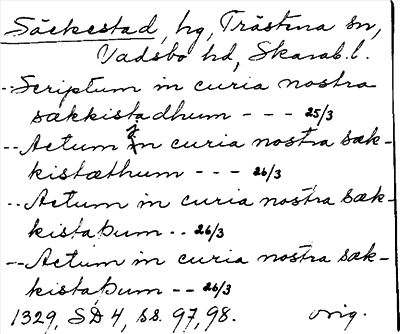 Säckestad, hg, Trästena sn,
Vadsbo hd, Skarab. l.
--Scriptum in curia nostra
sækkistadhum --- 25/3
--Actum in curia nostra sæk-
kistæthum --- 26/3
--Actum in curia nostra sæk-
kistaþum -- 26/3
--Actum in curia nostra sæk-
kistaþum -- 26/3
1329, SD 4, ss. 97, 98. orig.